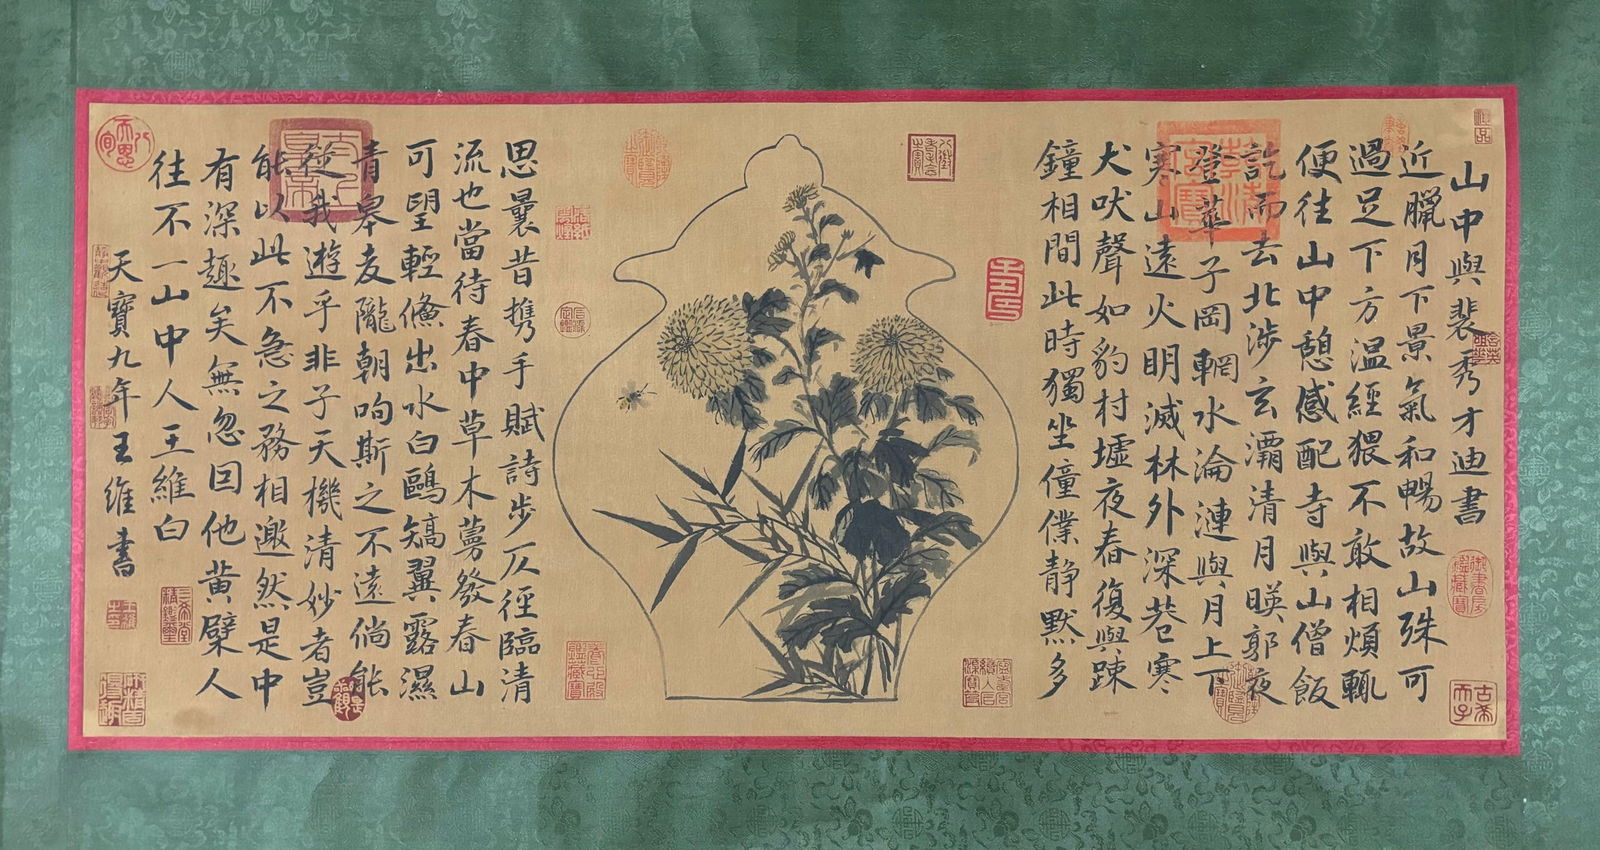 山中與裴秀才迪書
近臘月下景氣和暢故山殊可
過足下方溫經猥不敢相煩輒
便往山中憩感配寺與山僧飯
訖而去北涉玄灞清月暎郭夜
登華子岡輞水淪漣與月上下
寒山遠火明滅林外深巷寒
犬吠聲如豹村墟夜舂復與踈
鐘相間此時獨坐僮僕静默多
思曩昔攜手賦詩步仄徑臨清
流也當待春中草木蔓發春山
可望輕鯈出水白鷗矯翼露濕
青皋麦隴朝呴斯之不遠倘能
從我遊乎非子天機清妙者豈
能以此不急之務相邀然是中
有深趣矣無忽因他黄檗人
往不一山中人王維白
天寶九年王維書
御書房鑑藏寶
古希天子
八徵耄念之寶
三希堂精鑑璽